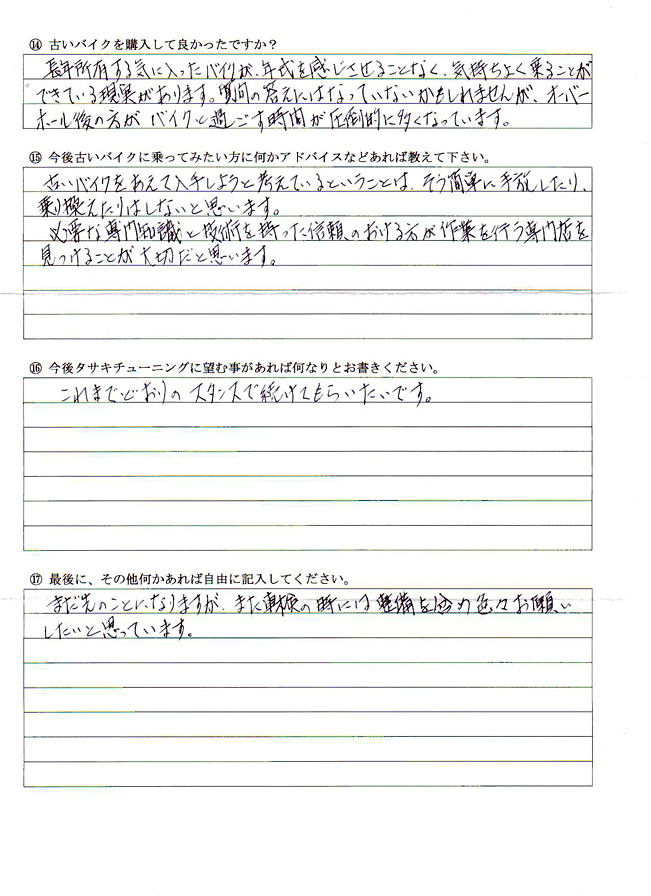 ⑭ 古いバイクを購入して良かったですか？
長年所有する気に入ったバイクが、年式を感じさせることなく、気持ちよく乗ることが
できている現実があります。質問の答えにはなっていないかもしれませんが、オーバー
ホール後の方が バイクと過ごす時間が圧倒的に多くなっています。
⑮ 今後古いバイクに乗ってみたい方に何かアドバイスなどあれば教えて下さい。
古いバイクをあえて入手しようと考えているということは、そう簡単に手放したり、
乗り換えたりはしないと思います。
必要な専門知識と技術を持った信頼のおける方が作業を行う専門店を
見つけることが大切だと思います。
⑯ 今後タサキチューニングに望む事があれば何なりとお書きください。
これまでどおりのスタンスで続けてもらいたいです。
⑰ 最後に、その他何かあれば自由に記入してください。
まだ先のことになりますが、また車検の時には整備を含め色々お願い
したいと思っています。